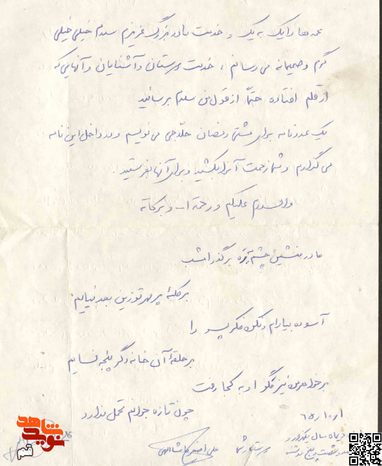 عمه ها را یک به یک و خدمت مادربزرگ عزیزم سلام خیلی خیلی
گرم و صمیمانه می رسانم، خدمت دوستان و آشنایان و آنهایی که
از قلم افتاده حتماً از قول من سلام برسانید
یک عدد نامه برای مشتی رمضان حلاجی می نویسم و در داخل این نامه
می گذارم و شما زحمت آنرا بکشید و برای آنها بفرستید.
والسلام علیکم و رحمة ا... و برکاته
مادر منشین چشم بره بر گذر امشب
بر خانه پر مهر تو زین بعد نیایم
آسوده بیارام و مکن فکر پسر را
بر حلقه آن خانه دگر پنجه نسایم
خواهر من نیز مگو او به کجا رفت
چون تازه جوان تحمل ندارد
۶۵/۱۰/۱
نوید شاهد